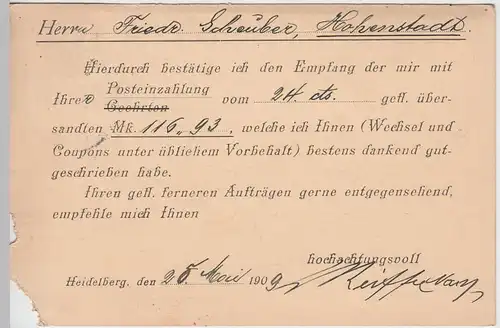 Herrn Friedr. Scheuber, Hohenstadt.
Hierdurch bestätige ich den Empfang der mir mit
Posteinzahlung
Ihrer Geehrten vom 24. cts. gefl. über-
sandten Mk. 116,,93, welche ich Ihnen (Wechsel und
Coupons unter üblichem Vorbehalt) bestens dankend gut-
geschrieben habe.
Ihren gefl. ferneren Aufträgen gerne entgegensehend,
empfehle mich Ihnen
hochachtungsvoll
Heidelberg, den Mai 1909